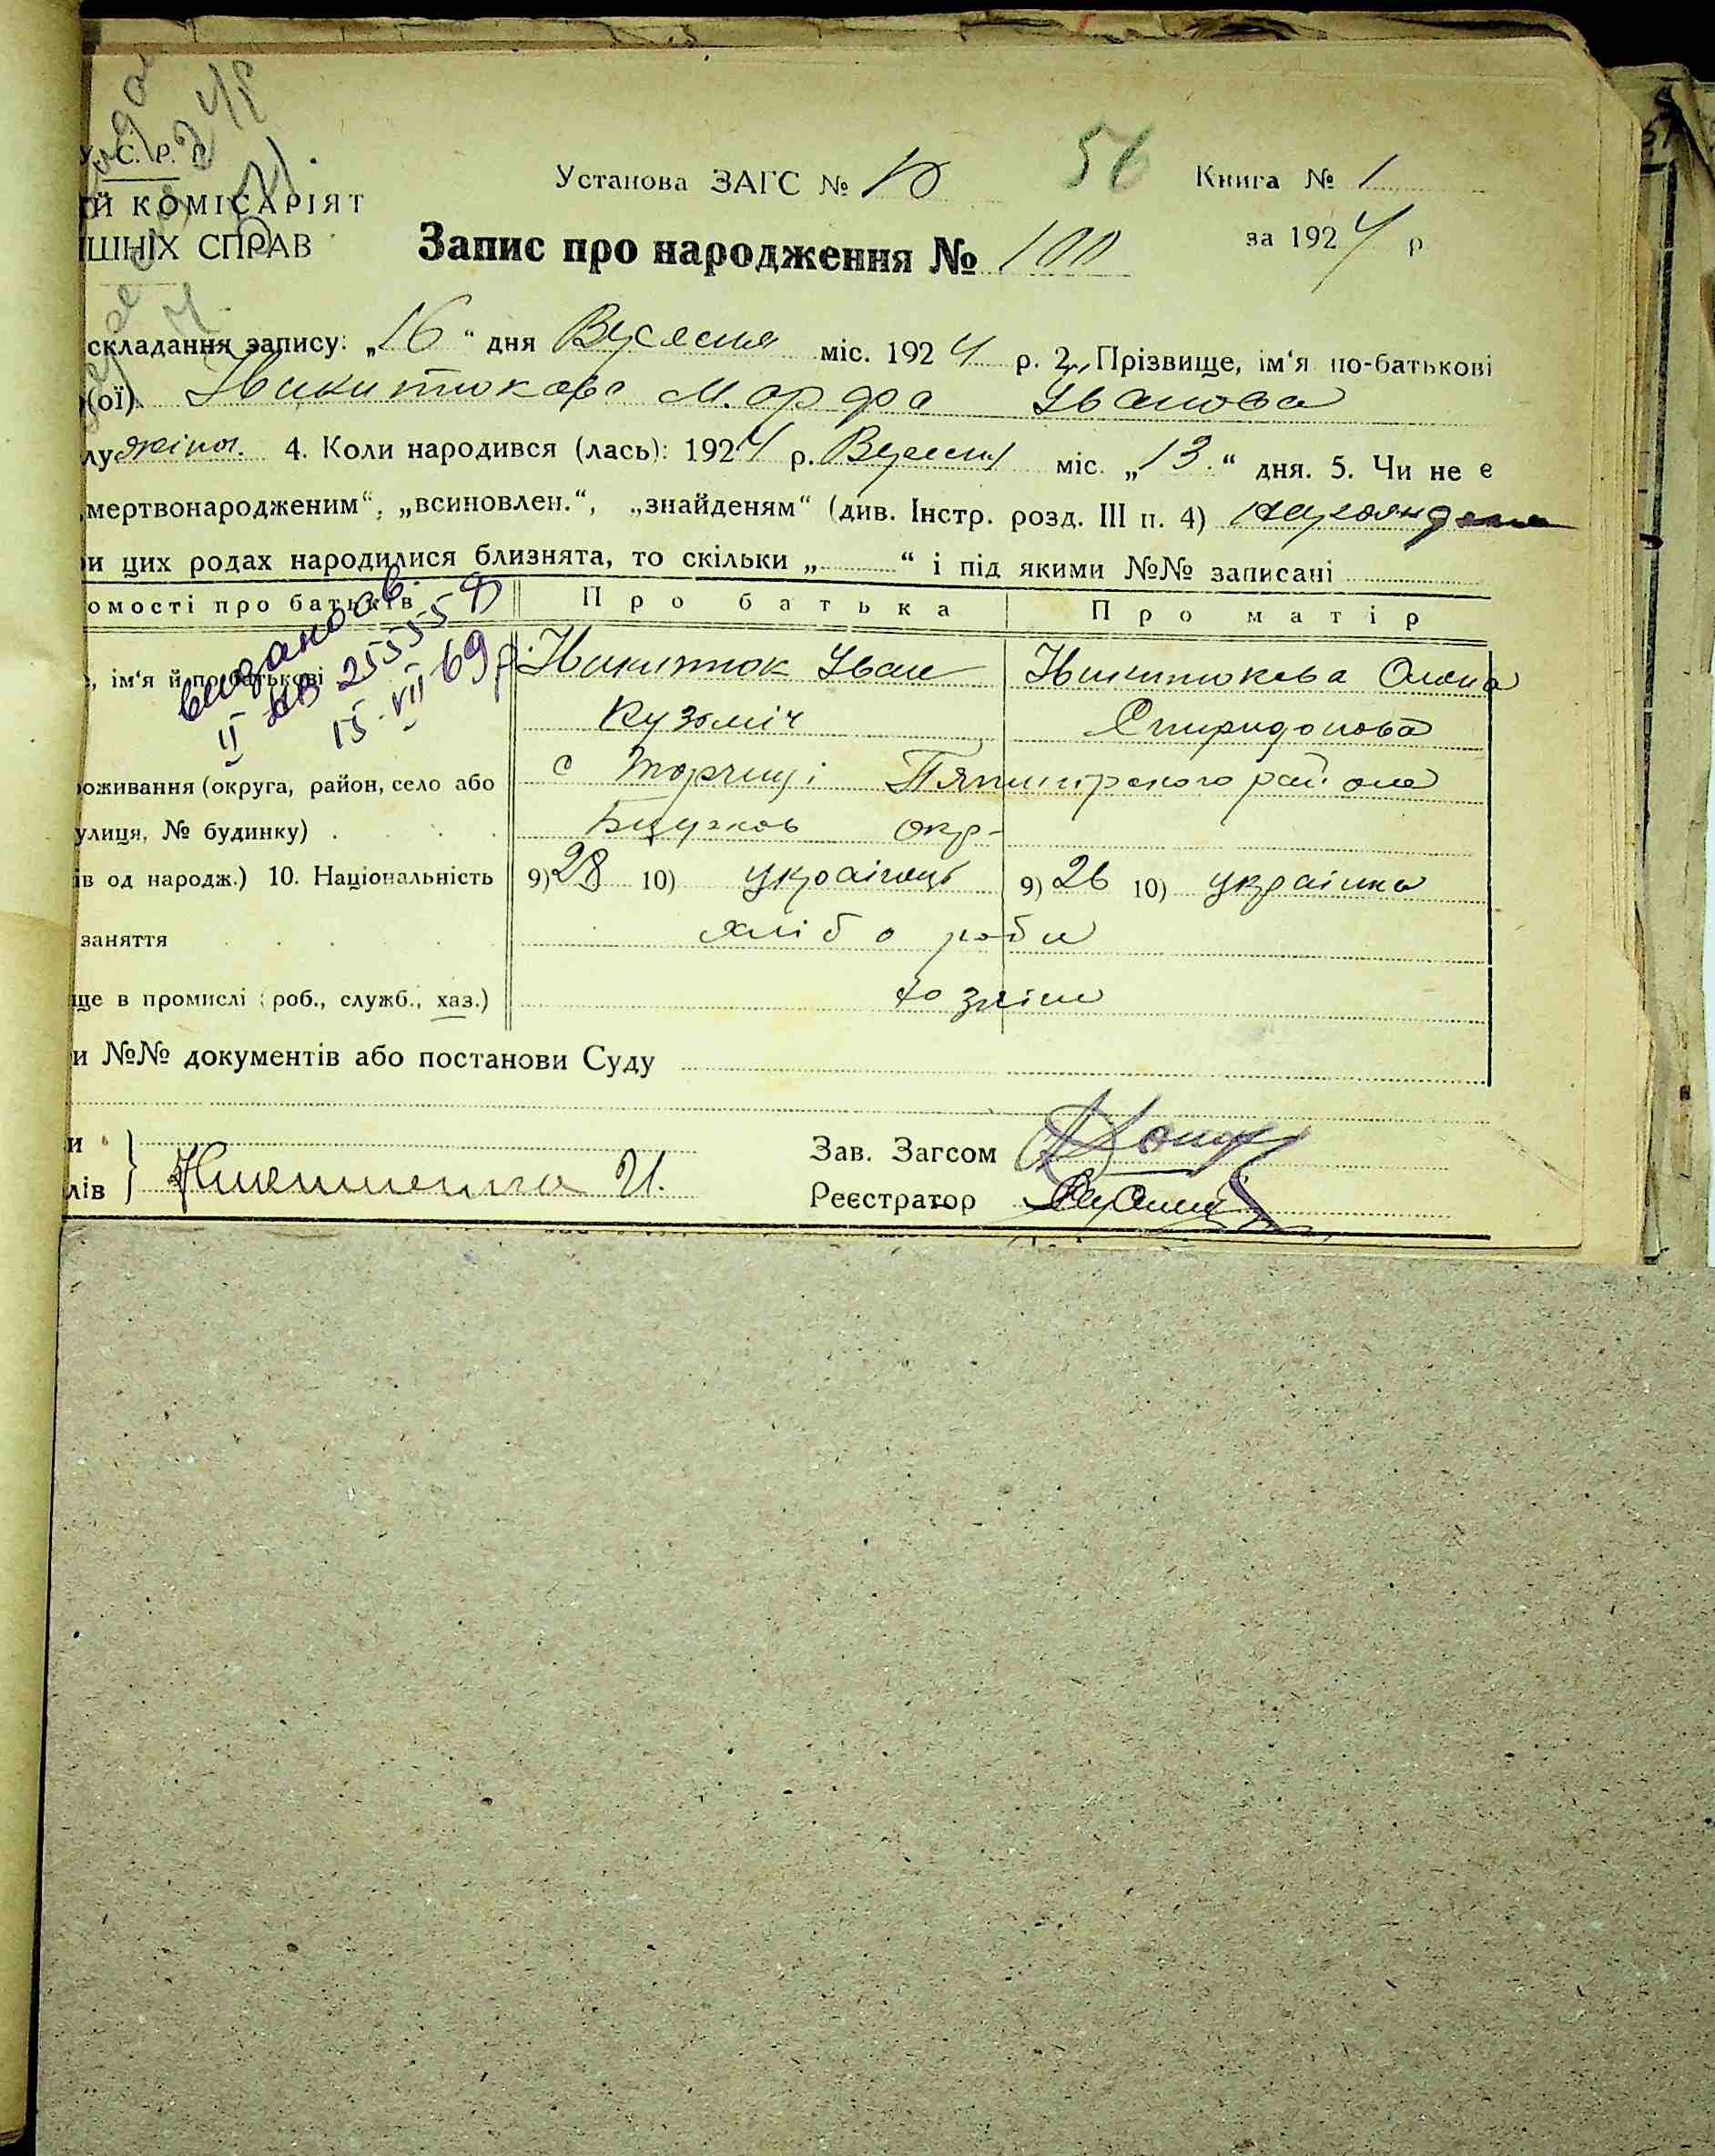 У. С. Р. Р.
Установа ЗАГС № 10
56
Книга № 1
Й КОМІСАРІЯТ
ШНІХ СПРАВ
Запис про народження № 100
за 1924 р
складання запису: „16“ дня Вересня міс. 1924 р. 2. Прізвище, ім'я по-батькові
(ої) Никитюкова Марфа Іванова
лу жіноч. 4. Коли народився (лась): 1924 р. Вересня міс. „13.“ дня. 5. Чи не є
„мертвонародженим“, „всиновлен.“, „знайденям“ (див. Інстр. розд. III п. 4)
и цих родах народилися близнята, то скільки „ “ і під якими №№ записані
омості про батьків
Про батька
Про матір
видано св.
II 255559
15-VII 69 р.
, ім'я й по-батькові
Никитюк Іван
Никитюкова Олена
Кузьміч
Спиридонова
оживання (округа, район, село або
с Торчиці Пятигірского района
улиця, № будинку)
окр-
ів од народж.) 10. Національність
9) 28 10) українець
9) 26 10) українка
заняття
хлібороби
ще в промислі (роб., служб., хаз.)
хозяіни
и №№ документів або постанови Суду
и
Зав. Загсом
лів
Реєстратор